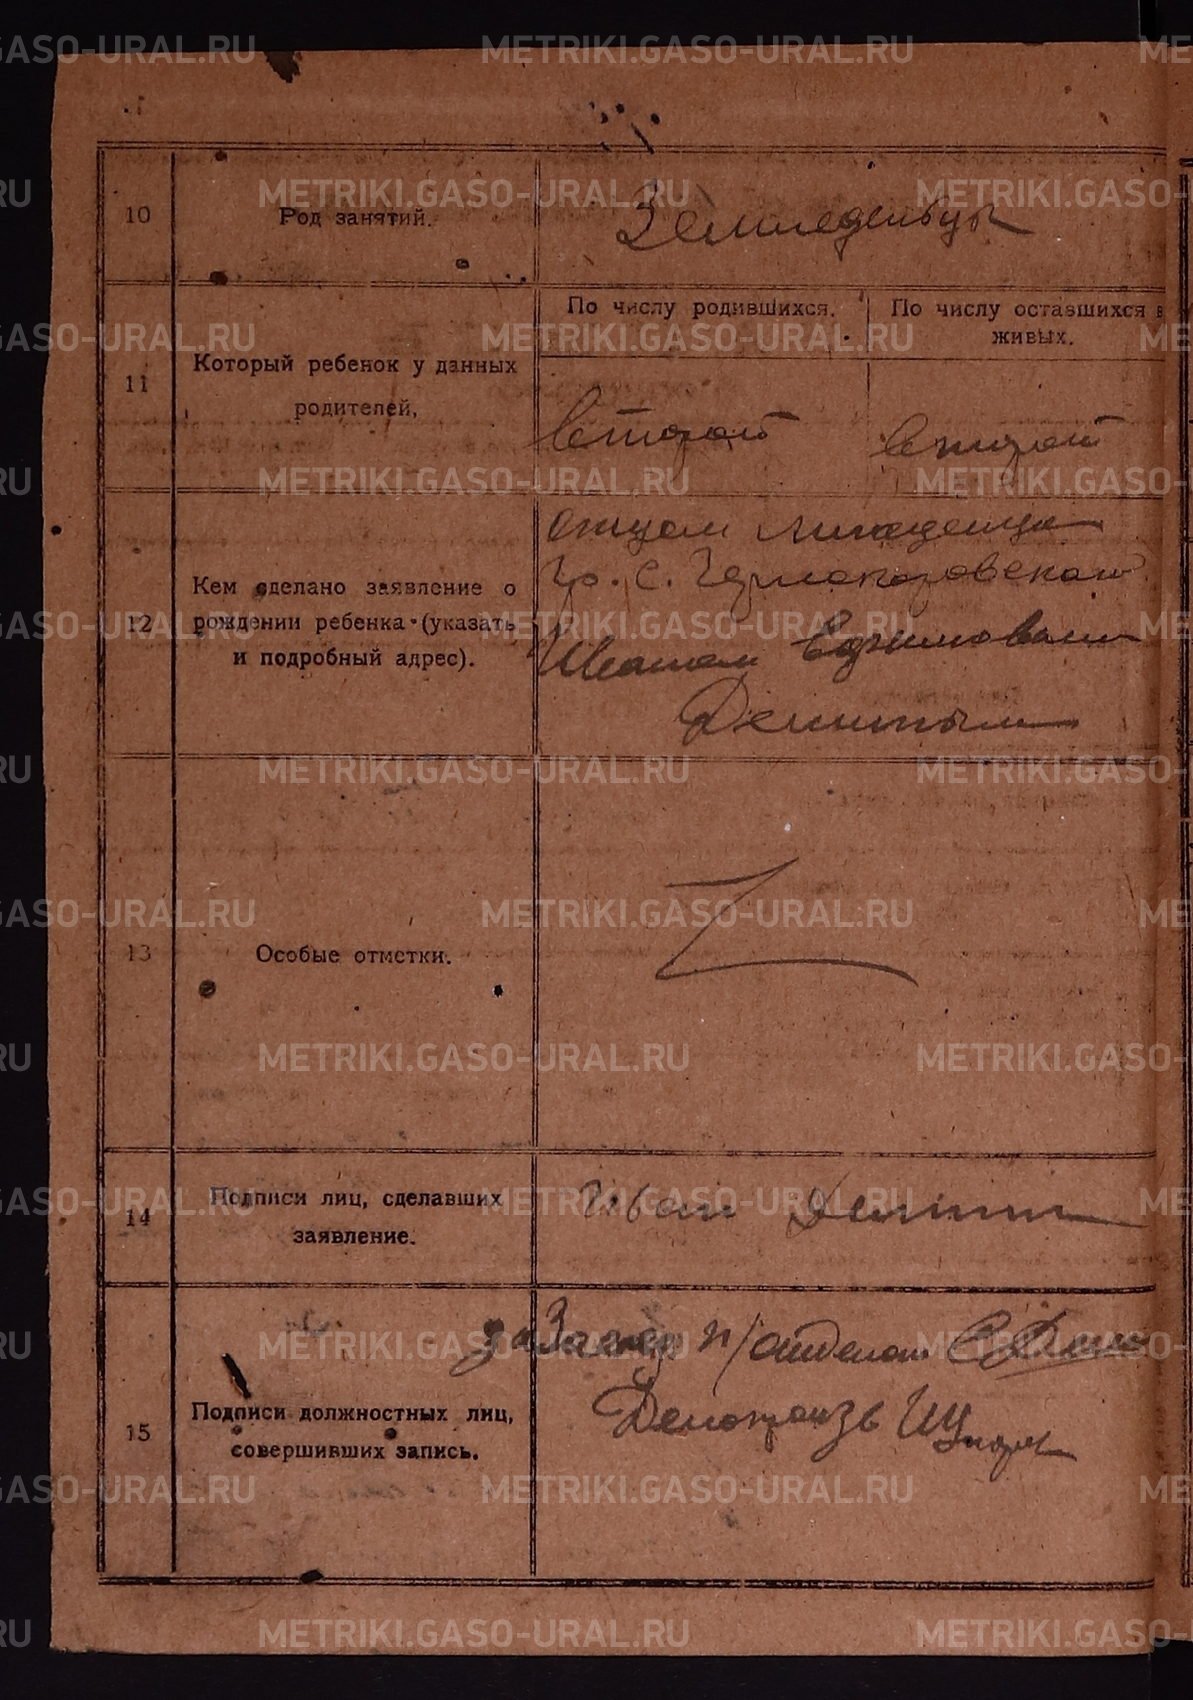 METRIKI.GASO-URAL.RU
10
Род занятий.
Земледельцы
11
Который ребенок у данных
родителей,
По числу родившихся.
По числу оставшихся в
живых.
второй
второй
12
Кем сделано заявление о
рождении ребенка (указать
и подробный адрес).
Отцом младенца
Гр. с.
Иваном Ефимовым
Деминым
13
Особые отметки.
14
Подписи лиц, сделавших
заявление.
Иван Демин
15
Подписи должностных лиц,
совершивших запись.
за Завед п/отделом
Делопроизв